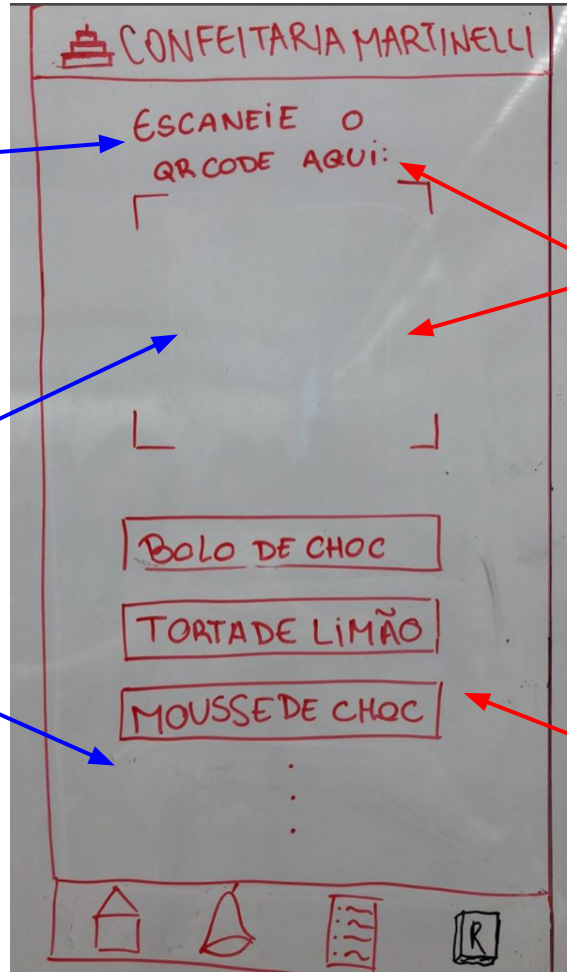 CONFEITARIA MARTINELLI
ESCANEIE O
QR CODE AQUI:
BOLO DE CHOC
TORTA DE LIMÃO
MOUSSE DE CHOC
R